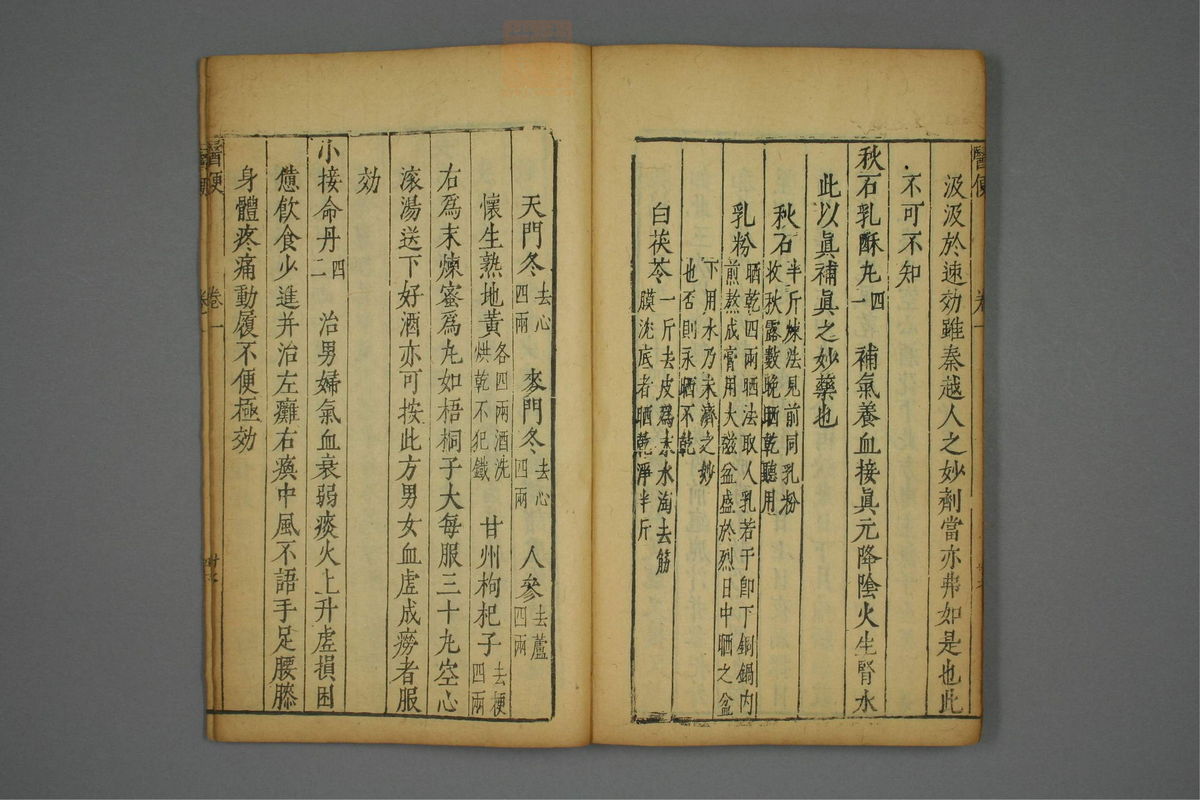 醫便
卷一
汲汲於速効雖秦越人之妙劑當亦弗如是也此
不可不知
秋石乳酥丸四一 補氣養血接眞元降陰火生腎水
此以眞補眞之妙藥也
秋石半斤煉法見前同乳粉
收秋露數晚晒乾聽用
乳粉晒乾四兩晒法取人乳若干卽下銅鍋內
煎熬成膏用大磁盆盛於烈日中晒之盆
下用水乃未濟之妙
也否則永晒不乾
白茯苓一斤去皮爲末水淘去筋
膜沈底者晒乾淨半斤
天門冬去心四兩 麥門冬去心四兩 人參去蘆四兩
懷生熟地黃各四兩酒洗烘乾不犯鐵 甘州枸杞子去梗四兩
右爲末煉蜜爲丸如梧桐子大每服三十丸空心
滾湯送下好酒亦可按此方男女血虛成癆者服
効
小接命丹四二 治男婦氣血衰弱痰火上升虛損困
憊飲食少進并治左癱右瘓中風不語手足腰膝
身體疼痛動履不便極効
醫便
卷一